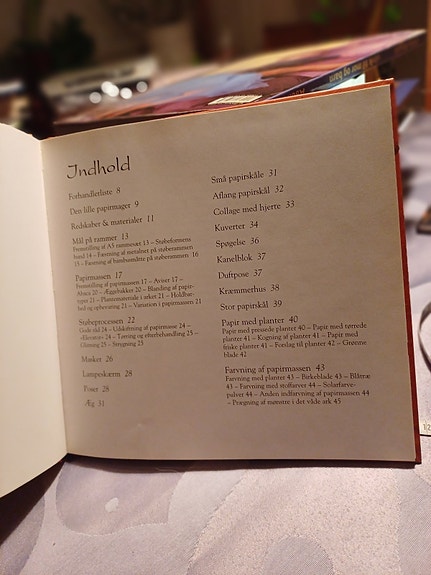 Indhold
Forhandlerliste 8
Den lille papirmager 9
Redskaber & materialer 11
Mål på rammer 13
Fremstilling af A5 rammesæt 13 – Støbeformens
bund 14 – Fæstning af metalnet på støberammen
15 – Fæstning af bambusmåtte på støberammen 16
Papirmassen 17
Fremstilling af papirmassen 17 – Aviser 17 –
Abaca 20 – Æggebakker 20 – Blanding af papir-
typer 21 – Plantemateriale i arket 21 – Holdbar-
hed og opbevaring 21 – Variation i papirmassen 21
Støbeprocessen 22
Gode råd 24 – Udskiftning af papirmasse 24 –
25 – Tørring og efterbehandling 25 –
Glitning 25 – Strygning 25
Masker 26
Lampeskærm 28
Poser 28
Æg 31
Små papirskåle 31
Aflang papirskål 32
Collage med hjerte 33
Kuverter 34
Spøgelse 36
Kanelblok 37
Duftpose 37
Kræmmerhus 38
Stor papirskål 39
Papir med planter 40
Papir med pressede planter 40 – Papir med tørrede
planter 41 – Kogning af planter 41 – Papir med
friske planter 41 – Forslag til planter 42 – Grønne
blade 42
Farvning af papirmassen 43
Farvning med planter 43 – Birkeblade 43 – Blåtræ
43 – Farvning med stoffarver 44 – Solarfarve-
pulver 44 – Anden indfarvning af papirmasse 44
– Prægning af mønstre i det våde ark 45